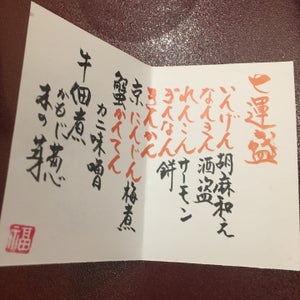 七運盛
いんげん 胡麻和え
なんきん 酒盗
れんこん サーモン
ぎんなん 餅
きんかん
京にんじん 梅煮
蟹かんてん
カニ味噌
牛佃煮
かもじ葱
木の芽
福